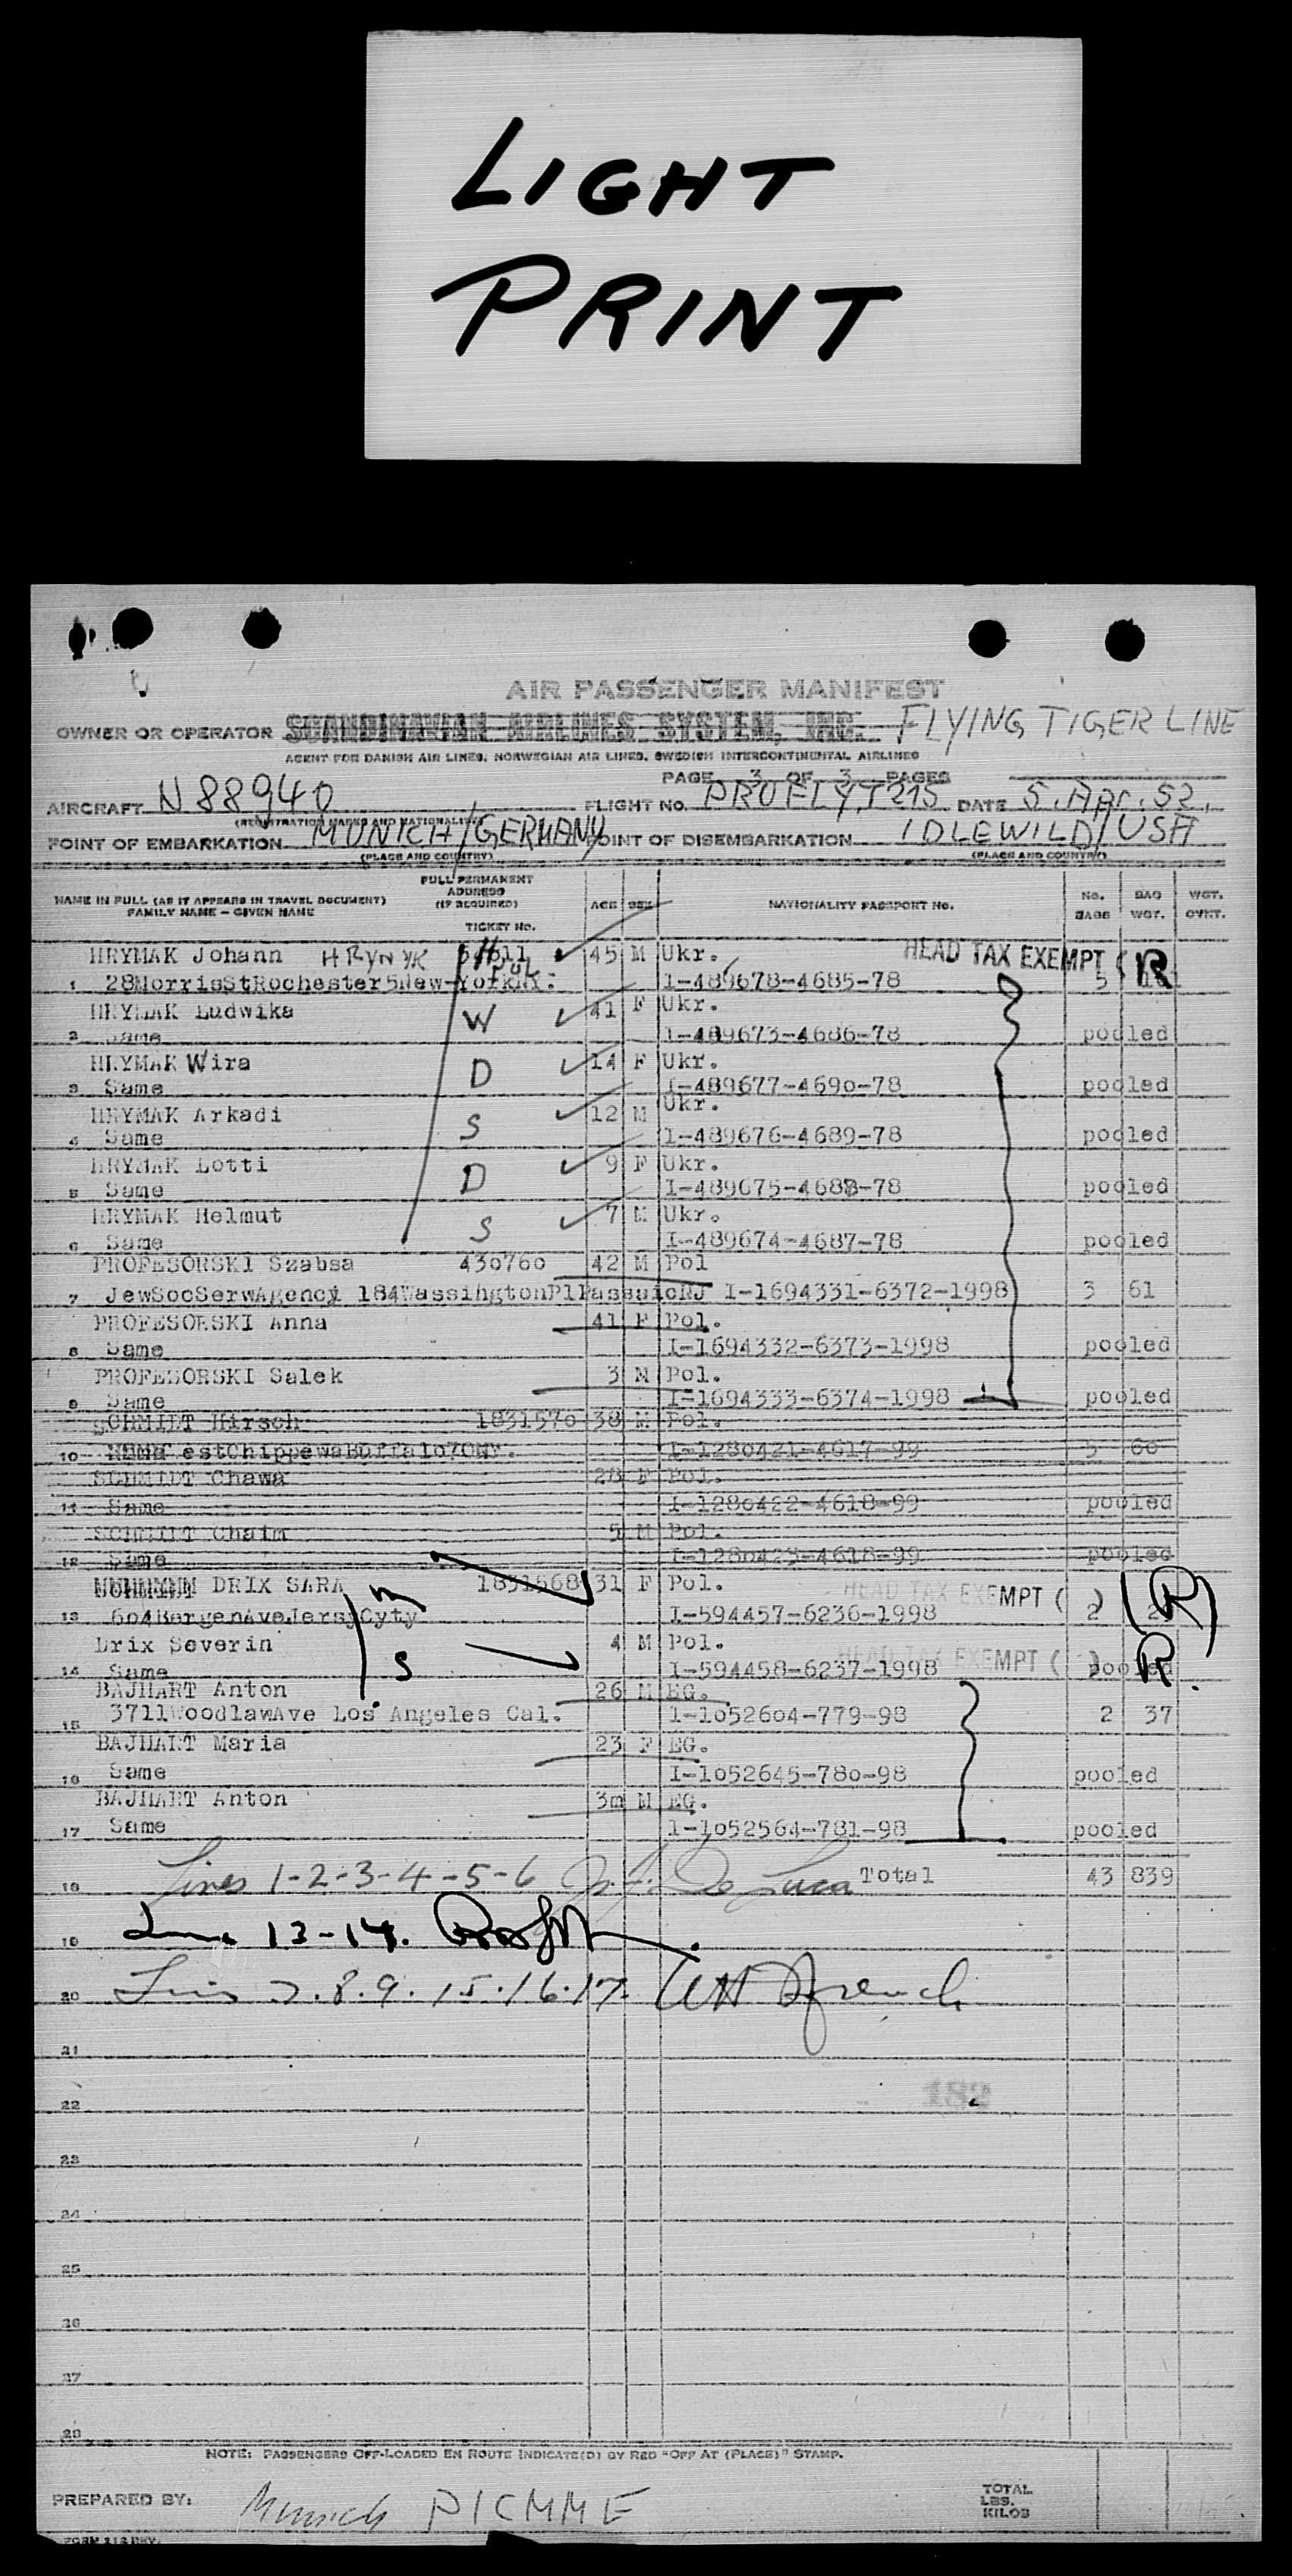 LIGHT
PRINT
AIR PASSENGER MANIFEST
OWNER OR OPERATOR SCANDINAVIAN AIRLINES SYSTEM, INC. FLYING TIGER LINE
AGENT FOR DANISH AIR LINES, NORWEGIAN AIR LINES, SWEDISH INTERCONTINENTAL AIRLINES
PAGE 3 OF 3 PAGES
AIRCRAFT N88940 FLIGHT NO. PROFLYT215 DATE 5.Apr.52.
(REGISTRATION MARKS AND NATIONALITY)
POINT OF EMBARKATION MUNICH/GERMANY POINT OF DISEMBARKATION IDLEWILD/USA
(PLACE AND COUNTRY) (PLACE AND COUNTRY)
NAME IN FULL (AS IT APPEARS IN TRAVEL DOCUMENT) FAMILY NAME - GIVEN NAME FULL PERMANENT ADDRESS (IF REQUIRED) TICKET No. AGE SEX NATIONALITY PASSPORT NO. No. BAGS BAG WGT. WGT. OVHT.
HRYMAK Johann HRYNYK H 45 M Ukr. HEAD TAX EXEMPT ( R
1 28MorrisStRochester5New-YorkNY. I-489678-4685-78 5
HRYMAK Ludwika W 41 F Ukr.
2 Same I-489673-4686-78 pooled
HRYMAK Wira D 14 F Ukr.
3 Same I-489677-4690-78 pooled
HRYMAK Arkadi S 12 M Ukr.
4 Same I-489676-4689-78 pooled
HRYMAK Lotti D 9 F Ukr.
5 Same I-489675-4688-78 pooled
HRYMAK Helmut S 7 M Ukr.
6 Same I-489674-4687-78 pooled
PROFESORSKI Szabsa 430760 42 M Pol
7 JewSocSerwAgency 184WassihgtonPlPassaicNJ I-1694331-6372-1998 3 61
PROFESORSKI Anna 41 F Pol.
8 Same I-1694332-6373-1998 pooled
PROFESORSKI Salek 3 M Pol.
9 Same I-1694333-6374-1998 pooled
SCHMIDT Hirsch 1831570 38 M Pol.
10 estChippewaBuffalo7ONY. I-1280421-4617-99 5 60
SCHMIDT Chawa 28 F Pol.
11 Same I-1280422-4618-99 pooled
SCHMIDT Chaim 5 M Pol.
12 Same I-1280423-4618-99 pooled
DRIX SARA m 1831568 31 F Pol. HEAD TAX EXEMPT ( ) (R)
13 604BergenAveJersyCyty I-594457-6236-1998 2
Drix Severin S 4 M Pol. HEAD TAX EXEMPT ( ) R.
14 Same I-594458-6237-1998 pooled
BAJHART Anton 26 M EG.
15 3711WoodlawAve Los Angeles Cal. I-1052604-779-98 2 37
BAJHART Maria 23 F EG.
16 Same I-1052645-780-98 pooled
BAJHART Anton 3m M EG.
17 Same I-1052564-781-98 pooled
18 Lines 1-2-3-4-5-6 De Luca Total 43 839
19 13-14.
20 7.8.9.15.16.17. French
21
22 182
23
24
25
26
27
28
NOTE: PASSENGERS OFF-LOADED EN ROUTE INDICATE(D) BY RED "OFF AT (PLACE)" STAMP.
PREPARED BY: Munich PICMME TOTAL LBS. KILOS